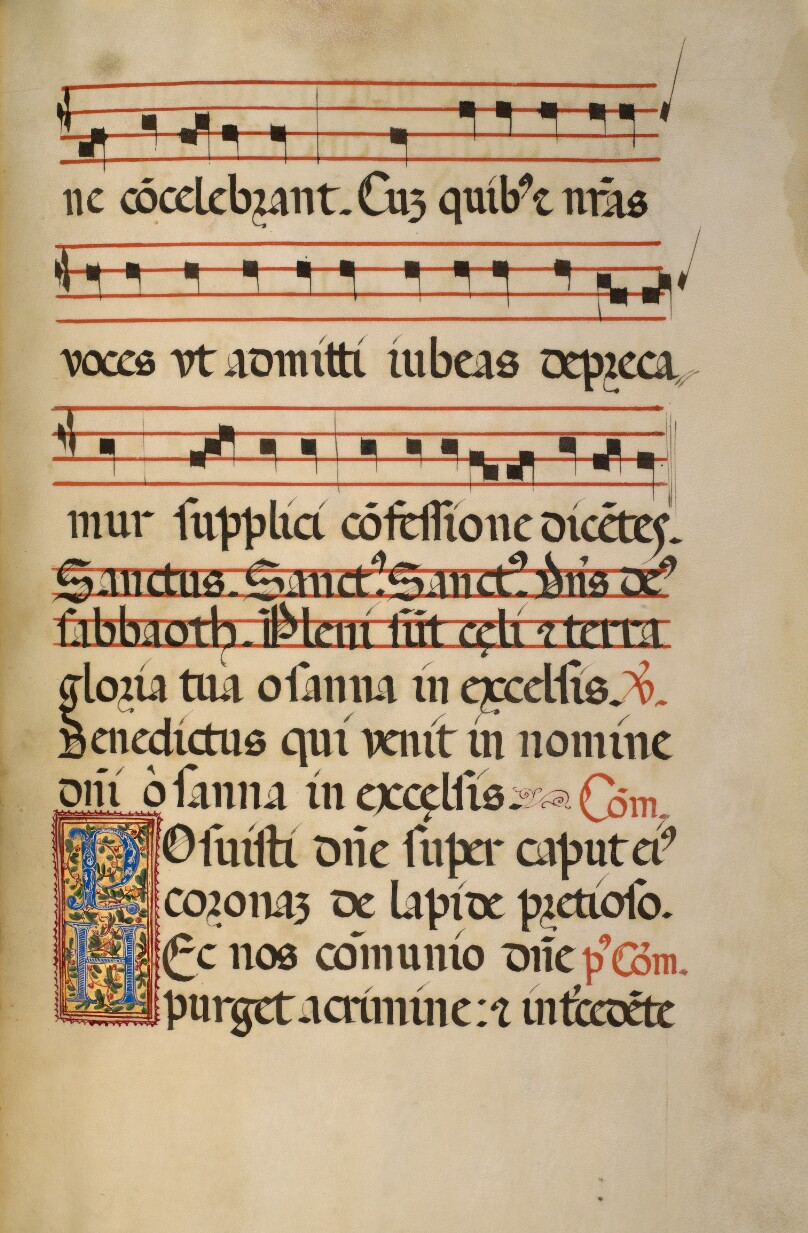 ne cōcelebꝛant. Cuꝫ quibꝰ ⁊ nr̄as
voces vt admitti iubeas depꝛeca⸗
mur ſupplici cōfeſſione dicētes.
Sanctus. Sanctꝰ. Sanctꝰ. Dn̄s deꝰ
ſabbaoth. Pleni ſūt cęli ⁊ terra
gloꝛia tua oſanna in excelſis. ℟.
Benedictus qui venit in nomine
dn̄i òſanna in excęlſis. Cōm.
POſuisti dn̄e ſuper caput eiꝰ
coꝛonaꝫ de lapide pꝛetioſo.
HEc nos cōmunio dn̄e pꝰ Cōm.
purget a crimine: ⁊ int̄cedēte